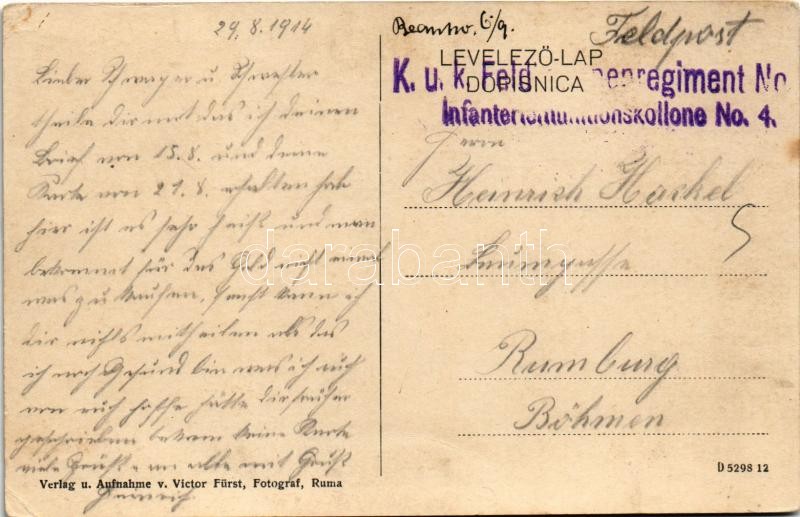 29.8.1914
Lieber Schwager u. Schwester
theile dir mit das ich deinen
Brief vom 15.8. und deine
Karte vom 21.8. erhalten habe
hier ist es sehr heiß und man
bekommt für das Geld nicht einmal
was zu kaufen, sonst kann ich
dir nichts mittheilen als das
ich noch Gesund bin was ich auch
von euch hoffe hätte dir früher
geschrieben bekam keine Karte
viele Grüße an alle mit Gruß
Heinrich
Verlag u. Aufnahme v. Victor Fürst, Fotograf, Ruma
Beantw. 6/9.
Feldpost
LEVELEZŐ-LAP
DOPISNICA
K. u. k. Feld regiment No
Infanteriemunitionskollone No. 4.
Herrn
Heinrich Hackel
5
Baumgasse
Rumburg
Böhmen
D 5298 12
darabanth